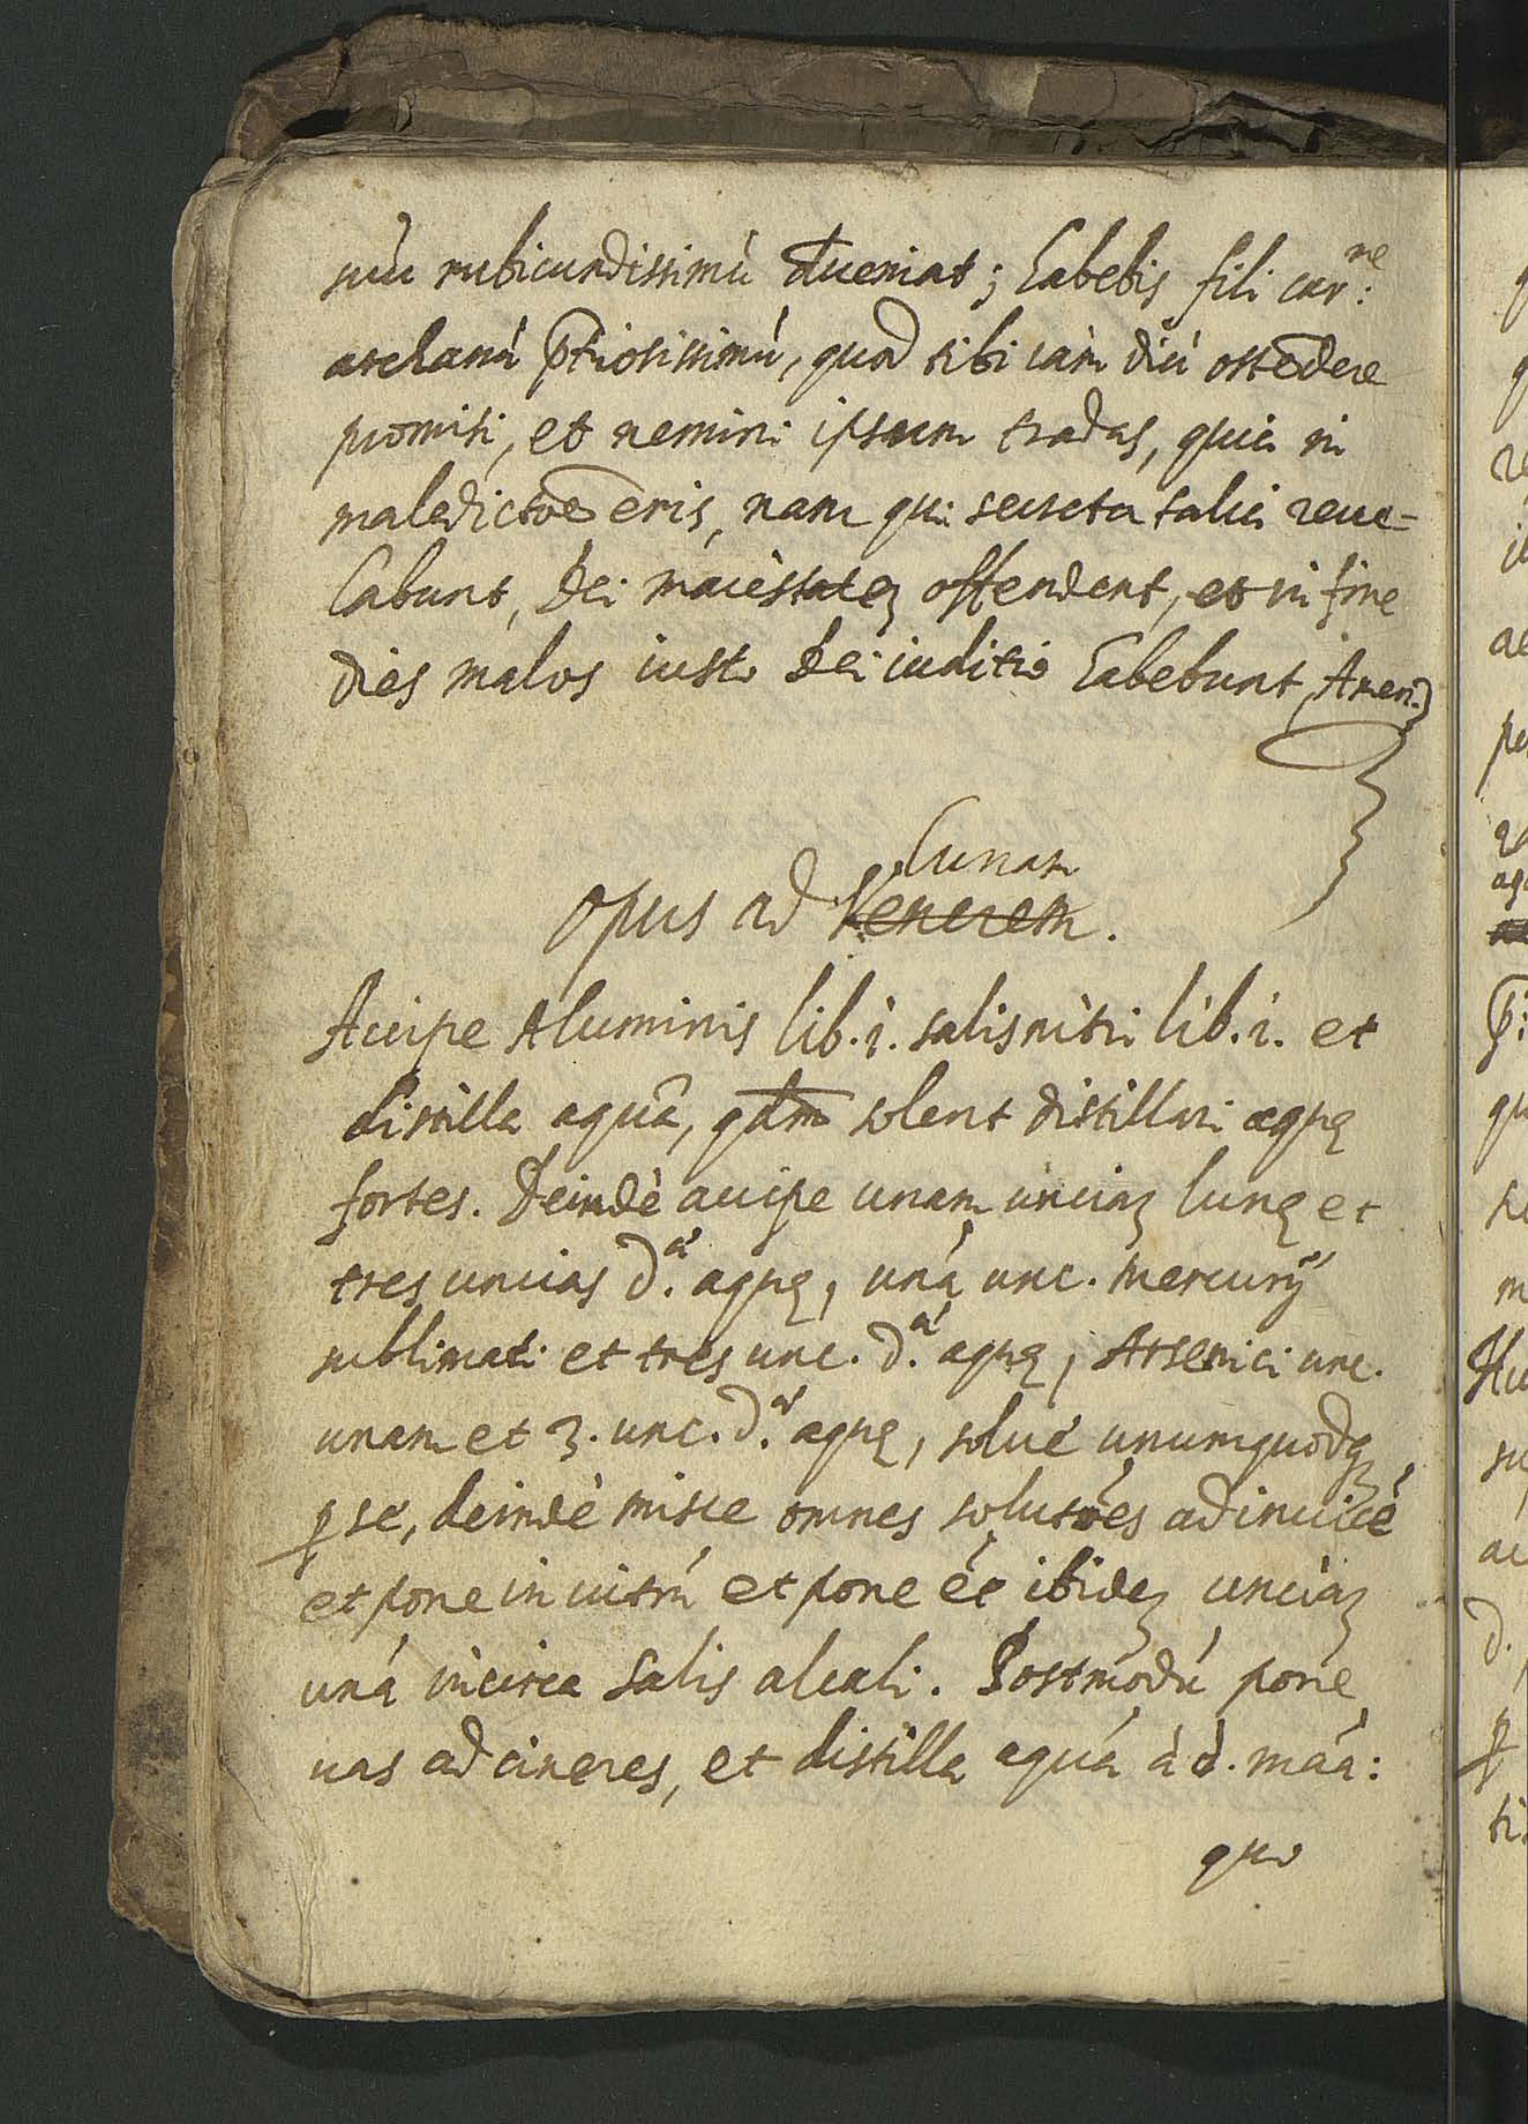 suū rubicundissimū dueniat; habebis fili car:ne
archanū p̄tiosissimū, quod tibi iam diù ostēdere
promisi, et nemini ipsum tradas, quia in
maledictōe eris, nam qui secreta talia reue=
labunt, Dei maiestateȝ offendent, et in fine
dies malos iusto Dei iuditio habebunt, Amen.
Lunam
Opus ad Venerem.
Accipe Aluminis lib. i. salisnitri lib. i. et
distilla aquā, qdm̄ solent distillari aquę
fortes. Deindè accipe unam unciaȝ lunę et
tres uncias d.æ aquę, unā unc. mercurij
sublimati et tres unc. d.æ aquę, Arsenici unc.
unam et 3. unc. d.æ aquę, solue unumquodqȝ
ꝑ se, deindè misce omnes solutōes adinuicē
et pone in uitrū et pone ēt ibideȝ unciaȝ
unā incirca salis alcali. Postmodū pone
uas ad cineres, et distilla aquā à d. māa:
quo